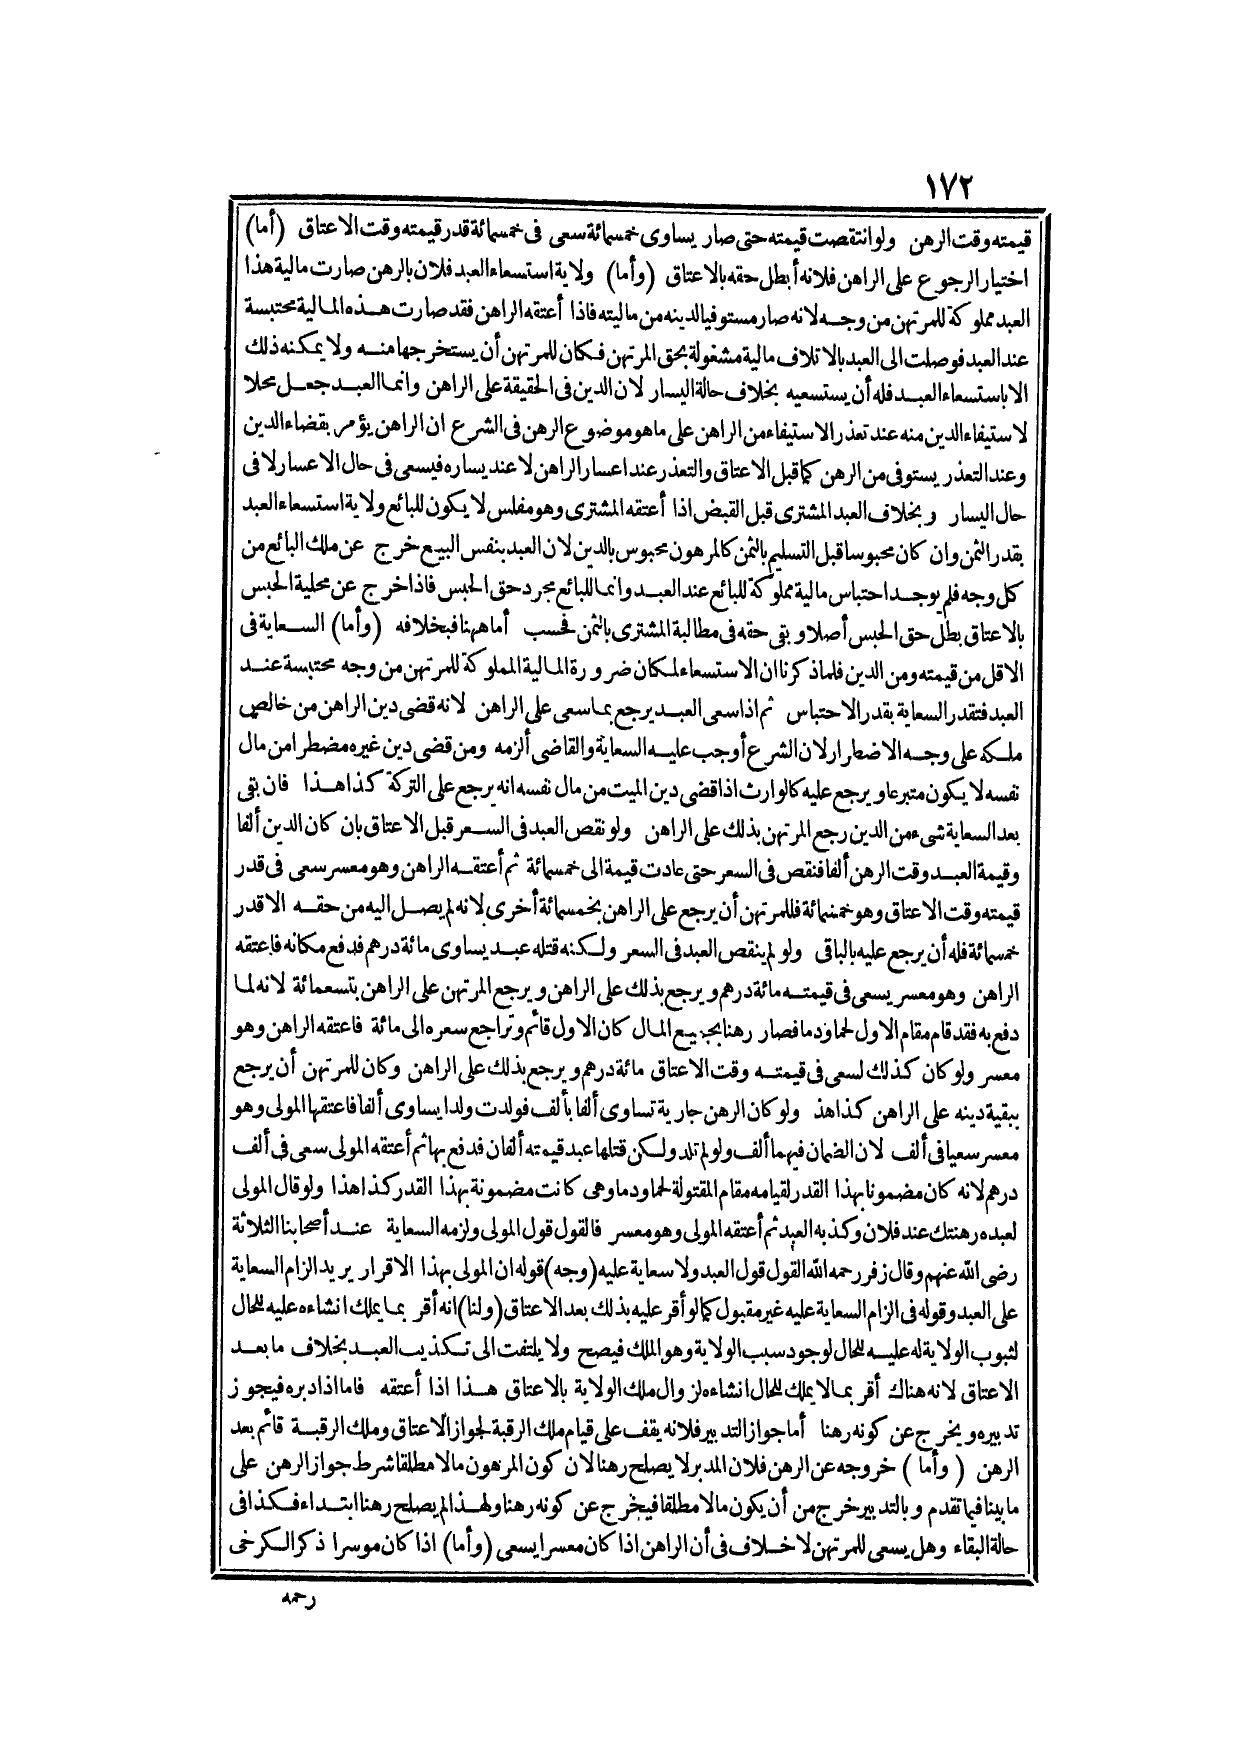 ١٧٢
قيمته وقت الرهن ولو انتقصت قيمته حتى صار يساوى خمسمائة سعى فى خمسمائة قدر قيمته وقت الاعتاق (أما)
اختيار الرجوع على الراهن فلانه أبطل حقه بالاعتاق (وأما) ولاية استسعاء العبد فلان بالرهن صارت مالية هذا
العبد مملوكة للمرتهن من وجه لانه صار مستوفيا لدينه من ماليته فاذا أعتقه الراهن فقد صارت هذه المالية محتبسة
عند العبد فوصلت الى العبد بالاتلاف مالية مشغولة بحق المرتهن فكان للمرتهن أن يستخرجها منه ولا يمكنه ذلك
الا باستسعاء العبد فله أن يستسعيه بخلاف حالة اليسار لان الدين فى الحقيقة على الراهن وانما العبد جعل محلا
لاستيفاء الدين منه عند تعذر الاستيفاء من الراهن على ما هو موضوع الرهن فى الشرع ان الراهن يؤمر بقضاء الدين
وعند التعذر يستوفى من الرهن كما قبل الاعتاق والتعذر عند اعسار الراهن لا عند يساره فيسعى فى حال الاعسار لا فى
حال اليسار وبخلاف العبد المشترى قبل القبض اذا أعتقه المشترى وهو مفلس لا يكون للبائع ولاية استسعاء العبد
بقدر الثمن وان كان محبوسا قبل التسليم بالثمن كالمرهون محبوس بالدين لان العبد بنفس البيع خرج عن ملك البائع من
كل وجه فلم يوجد احتباس مالية مملوكة للبائع عند العبد وانما للبائع مجرد حق الحبس فاذا خرج عن محلية الحبس
بالاعتاق بطل حق الحبس أصلا وبقى حقه فى مطالبة المشترى بالثمن فحسب أما ههنا فبخلافه (وأما) السعاية فى
الاقل من قيمته ومن الدين فلما ذكرنا ان الاستسعاء لمكان ضرورة المالية المملوكة للمرتهن من وجه محتبسة عند
العبد فتقدر السعاية بقدر الاحتباس ثم اذا سعى العبد يرجع بما سعى على الراهن لانه قضى دين الراهن من خالص
ملكه على وجه الاضطرار لان الشرع أوجب عليه السعاية والقاضى ألزمه ومن قضى دين غيره مضطرا من مال
نفسه لا يكون متبرعا ويرجع عليه كالوارث اذا قضى دين الميت من مال نفسه انه يرجع على التركة كذا هذا فان بقى
بعد السعاية شىء من الدين رجع المرتهن بذلك على الراهن ولو نقص العبد فى السعر قبل الاعتاق بان كان الدين ألفا
وقيمة العبد وقت الرهن ألفا فنقص فى السعر حتى عادت قيمة الى خمسمائة ثم أعتقه الراهن وهو معسر سعى فى قدر
قيمته وقت الاعتاق وهو خمسمائة فللمرتهن أن يرجع على الراهن بخمسمائة أخرى لانه لم يصل اليه من حقه الا قدر
خمسمائة فله أن يرجع عليه بالباقى ولو لم ينقص العبد فى السعر ولكنه قتله عبد يساوى مائة درهم فدفع مكانه فاعتقه
الراهن وهو معسر يسعى فى قيمته مائة درهم ويرجع بذلك على الراهن ويرجع المرتهن على الراهن بتسعمائة لانه لما
دفع به فقد قام مقام الاول لحما ودما فصار رهنا بجميع المال كان الاول قائم وتراجع سعره الى مائة فاعتقه الراهن وهو
معسر ولو كان كذلك لسعى فى قيمته وقت الاعتاق مائة درهم ويرجع بذلك على الراهن وكان للمرتهن أن يرجع
ببقية دينه على الراهن كذا هذ ولو كان الرهن جارية تساوى ألفا بألف فولدت ولدا يساوى ألفا فاعتقها المولى وهو
معسر سعيا فى ألف لان الضمان فيهما ألف ولو لم تلد ولكن قتلها عبد قيمته ألفان فدفع بها ثم أعتقه المولى سعى فى ألف
درهم لانه كان مضمونا بهذا القدر لقيامه مقام المقتولة لحما ودما وهى كانت مضمونة بهذا القدر كذا هذا ولو قال المولى
لعبده رهنتك عند فلان وكذبه العبد ثم أعتقه المولى وهو معسر فالقول قول المولى ولزمه السعاية عند أصحابنا الثلاثة
رضى الله عنهم وقال زفر رحمه الله القول قول العبد ولا سعاية عليه (وجه) قوله ان المولى بهذا الاقرار يريد الزام السعاية
على العبد وقوله فى الزام السعاية عليه غير مقبول كما لو أقر عليه بذلك بعد الاعتاق (ولنا) انه أقر بما يملك انشاءه عليه للحال
لثبوت الولاية له عليه للحال لوجود سبب الولاية وهو الملك فيصح ولا يلتفت الى تكذيب العبد بخلاف ما بعد
الاعتاق لانه هناك أقر بما لا يملك للحال انشاءه لزوال ملك الولاية بالاعتاق هذا اذا أعتقه فاما اذا دبره فيجوز
تدبيره ويخرج عن كونه رهنا أما جواز التدبير فلانه يقف على قيام ملك الرقبة لجواز الاعتاق وملك الرقبة قائم بعد
الرهن (وأما) خروجه عن الرهن فلان المدبر لا يصلح رهنا لان كون المرهون مالا مطلقا شرط جواز الرهن على
ما بينا فيما تقدم وبالتدبير خرج من أن يكون مالا مطلقا فيخرج عن كونه رهنا ولهذا لم يصلح رهنا ابتداء فكذا فى
حالة البقاء وهل يسعى للمرتهن لا خلاف فى أن الراهن اذا كان معسرا يسعى (وأما) اذا كان موسرا ذكر الكرخى
رحمه